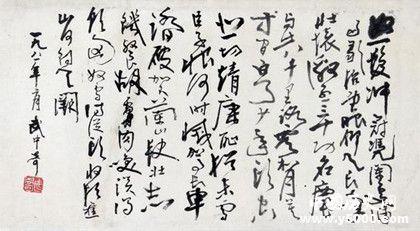 怒髮冲冠凭闌處潇
雨歇抬望眼仰天长
壮怀激烈三十功名塵
土八千里路雲和月莫
等闲白了少年头空
悲切靖康耻犹未雪
臣子恨何时灭驾长車
踏破贺兰山缺壮志
饥餐胡虏肉笑谈渴
飲匈奴血待從头收拾旧
山河朝天阙
一九八一年月武中奇
www.y5000.com